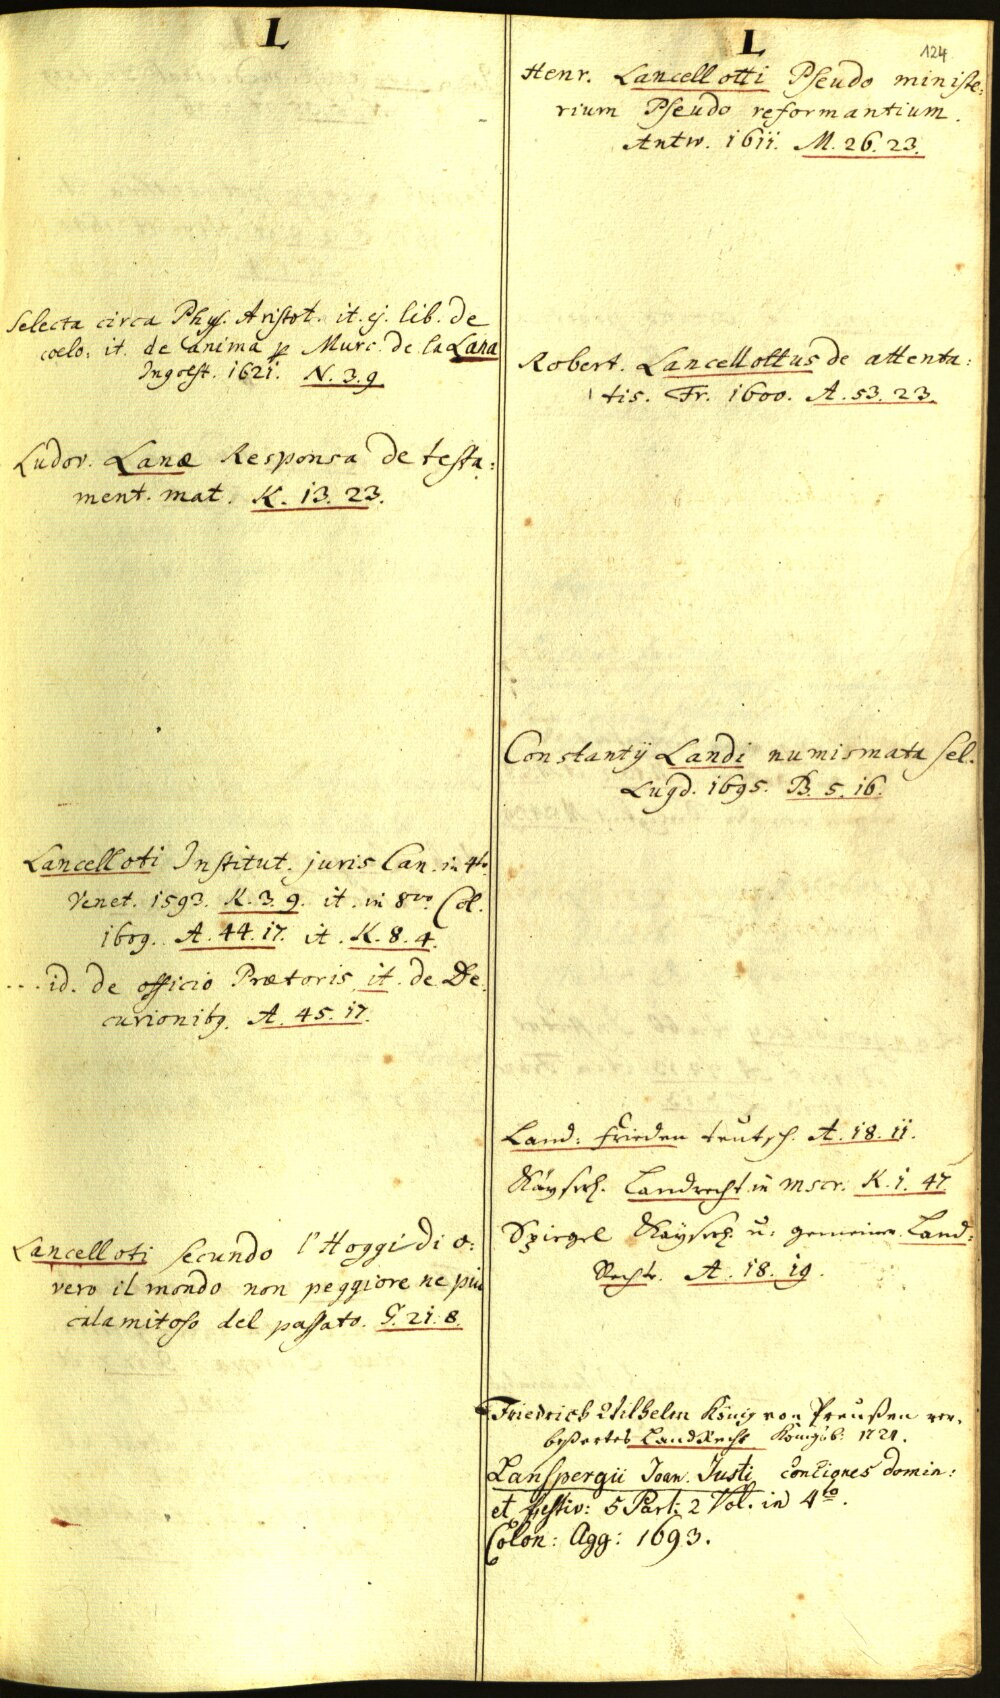 L
Selecta circa Phys. Aristot. it. ej. lib. de
coelo. it. de anima p Murc. de la Lana
Ingolst. 1621. N. 3. 9
Ludov. Lanæ Responsa de testa:
ment. mat. K. 13. 23.
Lancelloti Institut. juris Can. in 4to
Venet. 1593. K. 3. 9. it. in 8vo. Col.
1609. A. 44. 17. it. K. 8. 4.
... id. de officio Prætoris, it. de De
curionibq. A. 45. 17.
Lancelloti Secundo l'Hoggidi o:
vero il mondo non peggiore ne piu
calamitoso del passato. G. 21. 8.
L
124
Henr. Lancellotti Pseudo ministe:
rium Pseudo reformantium.
Antw. 1611. M. 26. 23.
Robert. Lancellottus de attenta:
tis. Fr. 1600. A. 53. 23.
Constantij Landi numismata sel.
Lugd. 1695. B. 5. 16.
Land: frieden teutsch. A. 18. 11.
Käyserl. Landrecht in mscr. K. 1. 47
Spiegel Kayserl. u: gemeiner Land:
Rechts. A. 18. 19.
Friedrich Wilhelm König von Preußen ver,
beßertes LandRecht Königsb: 1721.
Lanspergii Joan. Justi conciones domin:
et festiv: 5 Part: 2 Vol. in 4to.
Colon: Agg: 1693.